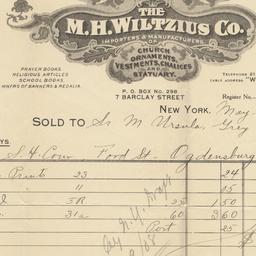 THE
M. H. WILTZIUS CO.
IMPORTERS & MANUFACTURERS
OF
CHURCH
ORNAMENTS,
VESTMENTS, CHALICES
AND
STATUARY.
PRAYER BOOKS
RELIGIOUS ARTICLES
SCHOOL BOOKS
MNFRS OF BANNERS & REGALIA.
TELEPHONE
CABLE ADDRESS "W
P. O. BOX No. 298
7 BARCLAY STREET
Register No.
NEW YORK, May
SOLD TO Sr M Ursula, Grey
Ford St Ogdensburg
Prints 23 24
" 11 15
5R 25 1 50
31a 60 3 60
Port 25